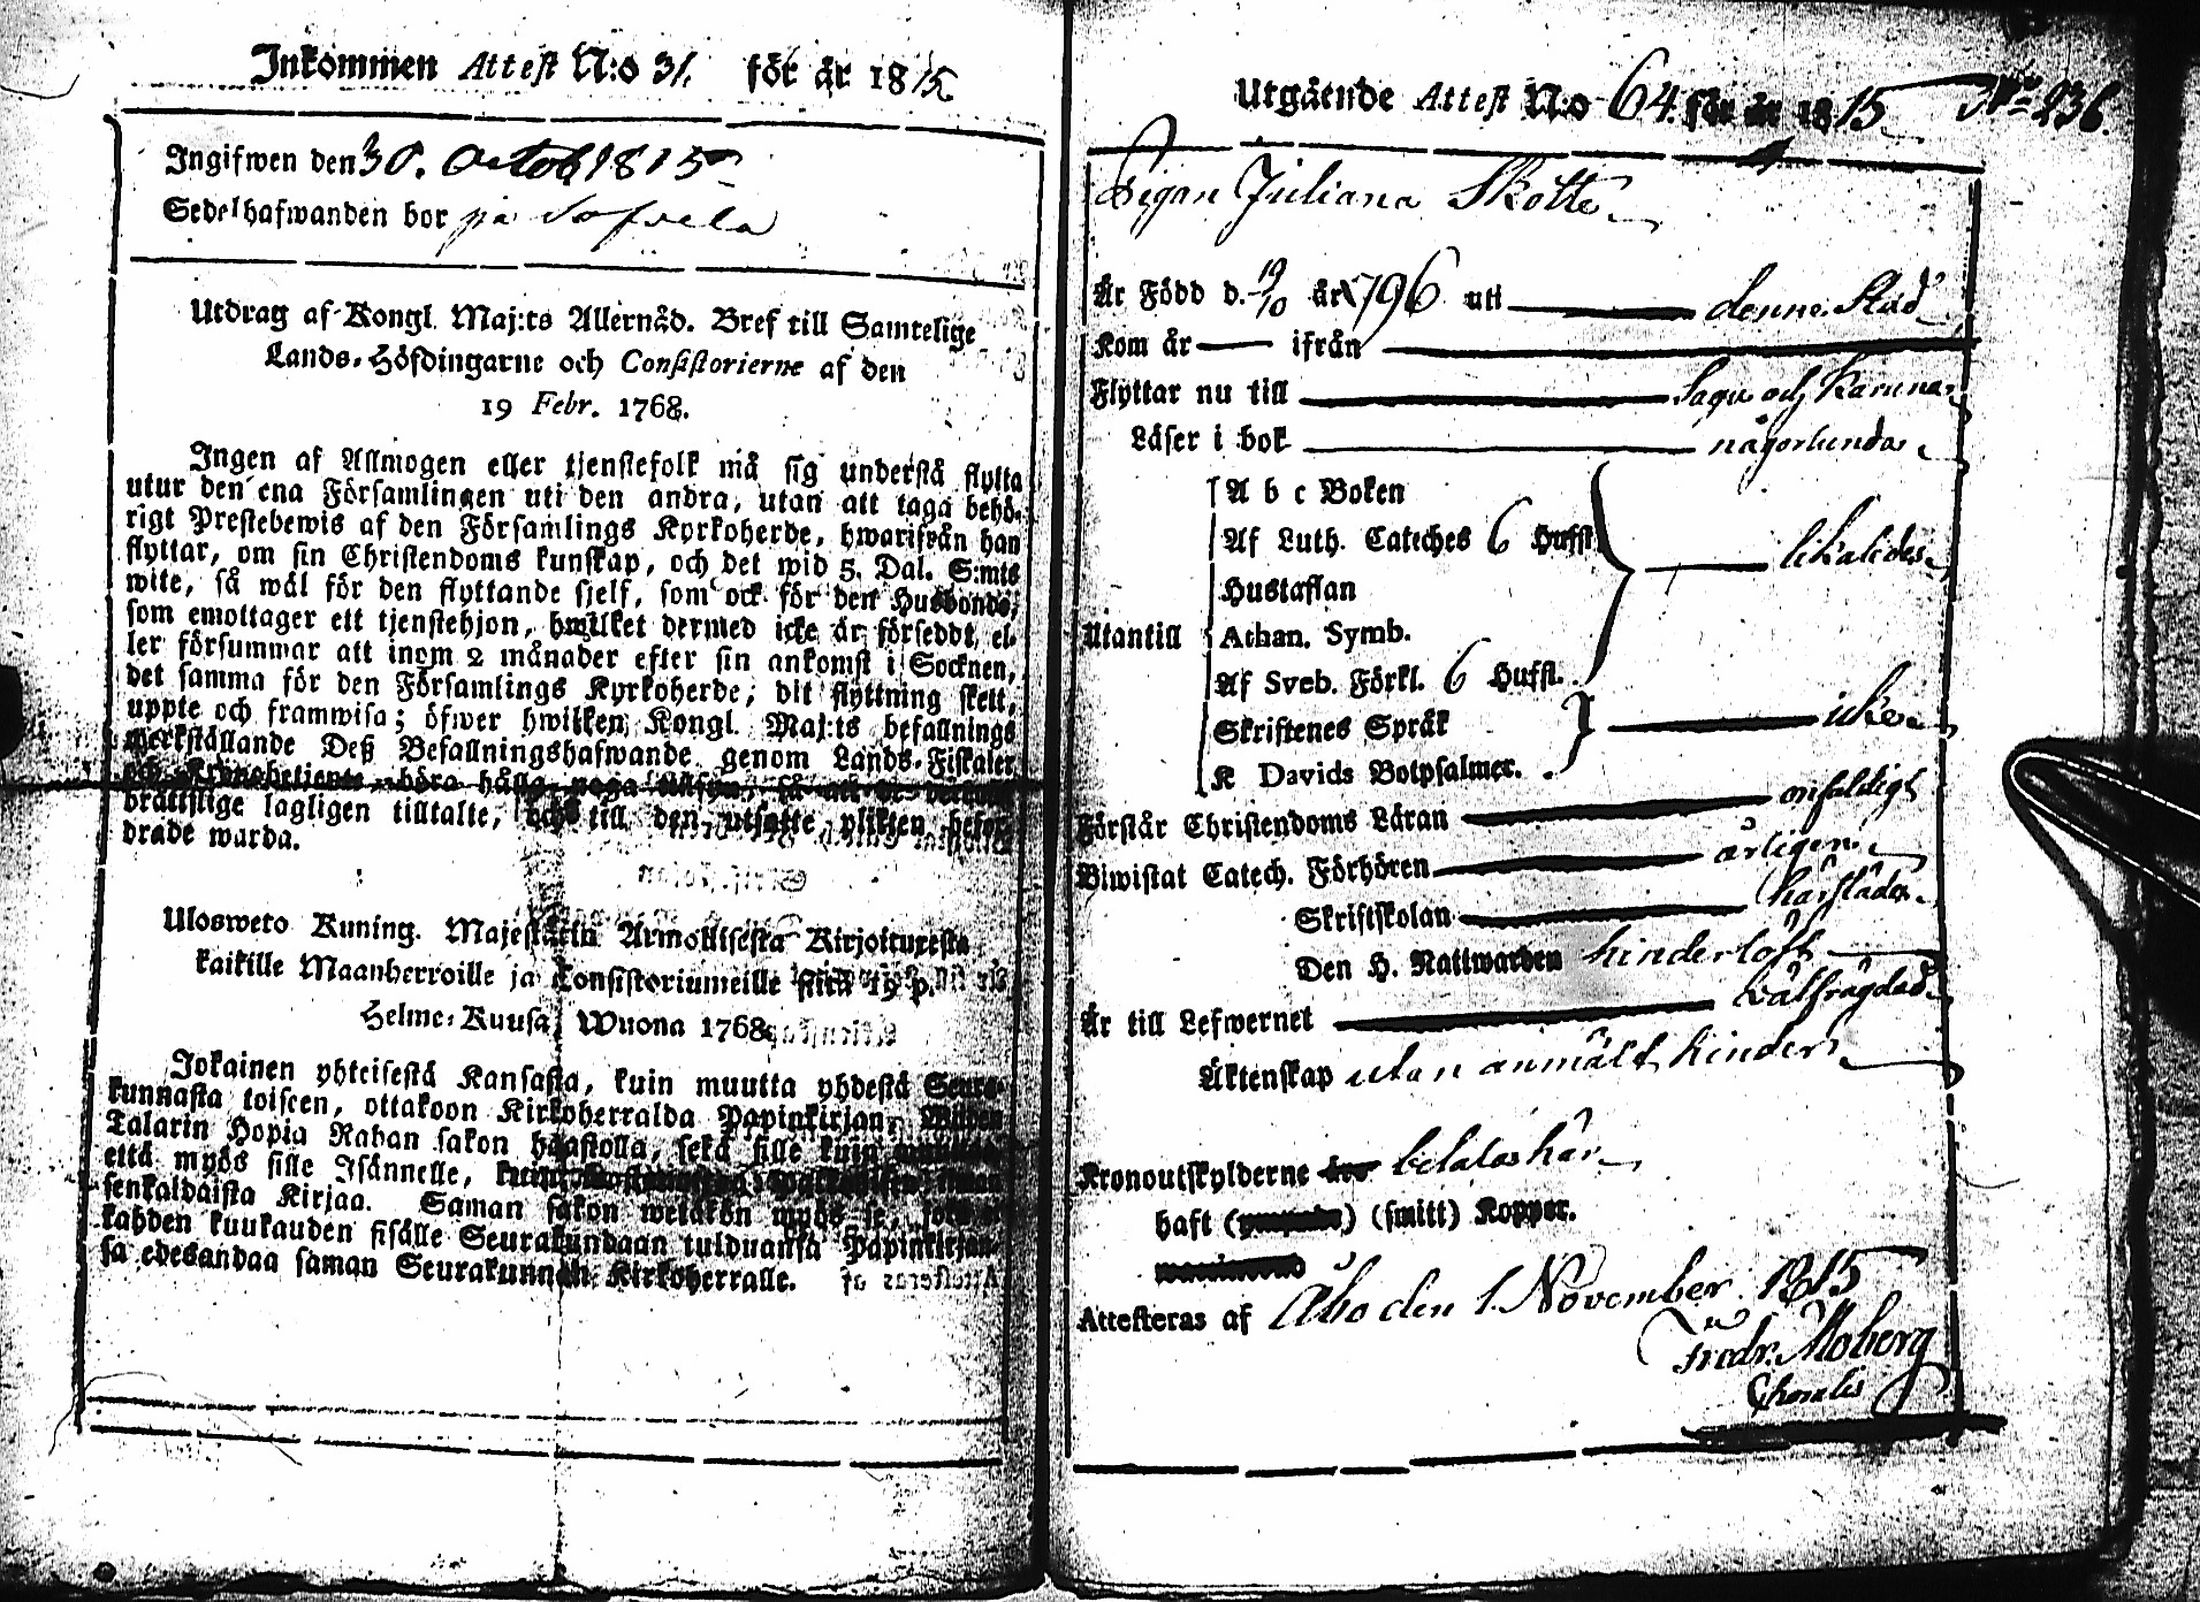 Inkommen Attest N:o 31. för år 1815
Ingifwen den 30. Octob 1815
Sedelhafwanden bor på Sofvela
Utdrag af Kongl. Maj:ts Allernåd. Bref till Samtelige
Lands-Höfdingarne och Consistorierne af den
19 Febr. 1768.
Ingen af Allmogen eller tjenstefolk må sig understå flytta
utur den ena Församlingen uti den andra, utan att taga behö-
rigt Prestebewis af den Församlings Kyrkoherde, hwarifrån han
flyttar, om sin Christendoms kunskap, och det wid 5. Dal. S:mts
wite, så wäl för den flyttande sjelf, som ock för den Husbonde,
som emottager ett tjenstehjon, hwilket dermed icke är försedt, el-
ler försummar att inom 2 månader efter sin ankomst i Socknen,
det samma för den Församlings Kyrkoherde, dit flyttning skett,
uppte och framwisa; öfwer hwilken Kongl. Maj:ts befallnings
werkställande Deß Befallningshafwande genom Lands-Fiskaler
och Kronobetjente, böra hålla noga tillsyn, så att de
brattslige lagligen tilltalte, och till den utsatte plikten befor-
drade warda.
Ulosweto Kuning. Majestätin Armollisesta Kirjoituxesta
kaikille Maanherroille ja Consistoriumeille siitä 19 p.
Helme-Kuusa, Wuona 1768.
Jokainen yhteisestä Kansasta, kuin muutta yhdestä Seura-
kunnasta toiseen, ottakoon Kirkoherralda Papinkirjan, Wiiden
Talarin Hopia Rahan sakon haastolla, sekä sille kuin
että myös sille Isännelle, kuin
senkaldaista Kirjaa. Saman sakon wetäkön myös se, joka
kahden kuukauden sisälle Seurakundaan tulduansa Papinkirjan-
sa edesandaa saman Seurakunnan Kirkoherralle.
Utgående Attest N:o 64. för år 1815 No 236.
Pigan Juliana Skotte
Är Född d. 19/10 år 1796 uti denne Stad
Kom år ifrån
Flyttar nu till Sagu och Karuna
Läser i bok någorlunda
A b c Boken
Af Luth. Cateches 6 Hufst
likaledes
Hustaflan
Utantill Athan. Symb.
Af Sveb. Förkl. 6 Hufst.
Skriftenes Språk icke
K Davids Botpsalmer.
Förstår Christendoms Läran enfaldigt
Biwistat Catech. Förhören årligen
Skriftskolan härstädes
Den H. Nattwarden hinderlöst
Är till Lefwernet wälfrägdad
Äktenskap utan anmält hinder
Kronoutskylderne betalas här
haft (smitt) Koppor.
Attesteras af Åbo den 1. November 1815
Fredr. Moberg